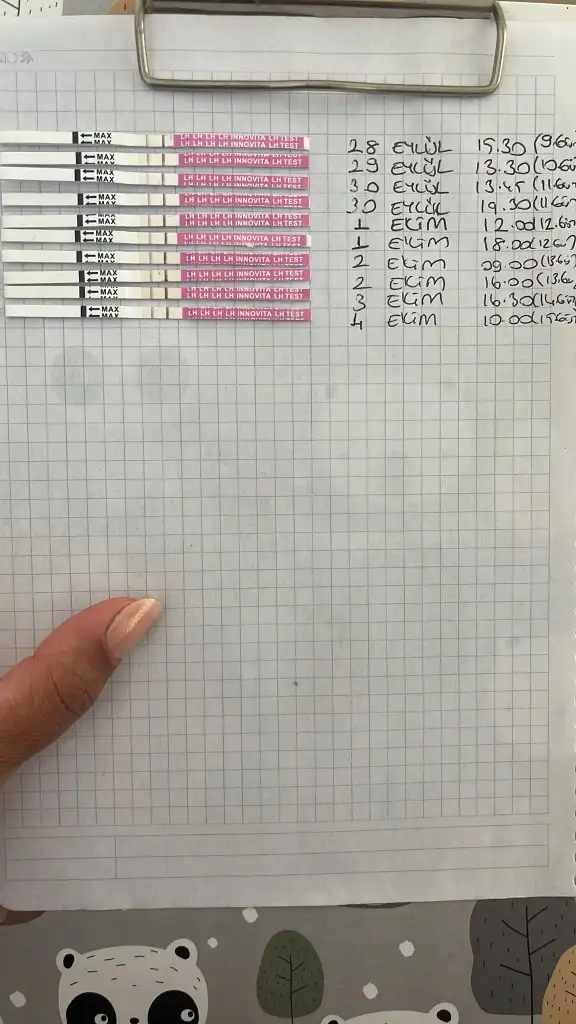 MAX LH LH LH LH INNOVITA LH TEST 28 EYLÜL 15.30 (9.GÜN
MAX 29 EYLÜL 13.30 (10.GÜN
MAX LH LH LH LH INNOVITA LH TEST 30 EYLÜL 13.45 (11.GÜN
MAX LH LH LH LH INNOVITA LH TEST 30 EYLÜL 19.30 (11.GÜN
MAX LH LH LH LH INNOVITA LH TEST 1 EKİM 12.00 (12.GÜN
MAX LH LH LH LH INNOVITA LH TEST 1 EKİM 18.00 (12.GÜN
MAX LH LH LH LH INNOVITA LH TEST 2 EKİM 09.00 (13.GÜN
MAX LH LH LH LH INNOVITA LH TEST 2 EKİM 16.00 (13.GÜN
MAX LH LH LH LH INNOVITA LH TEST 3 EKİM 16.30 (14.GÜN
MAX LH LH LH LH INNOVITA LH TEST 4 EKİM 10.00 (15.GÜN